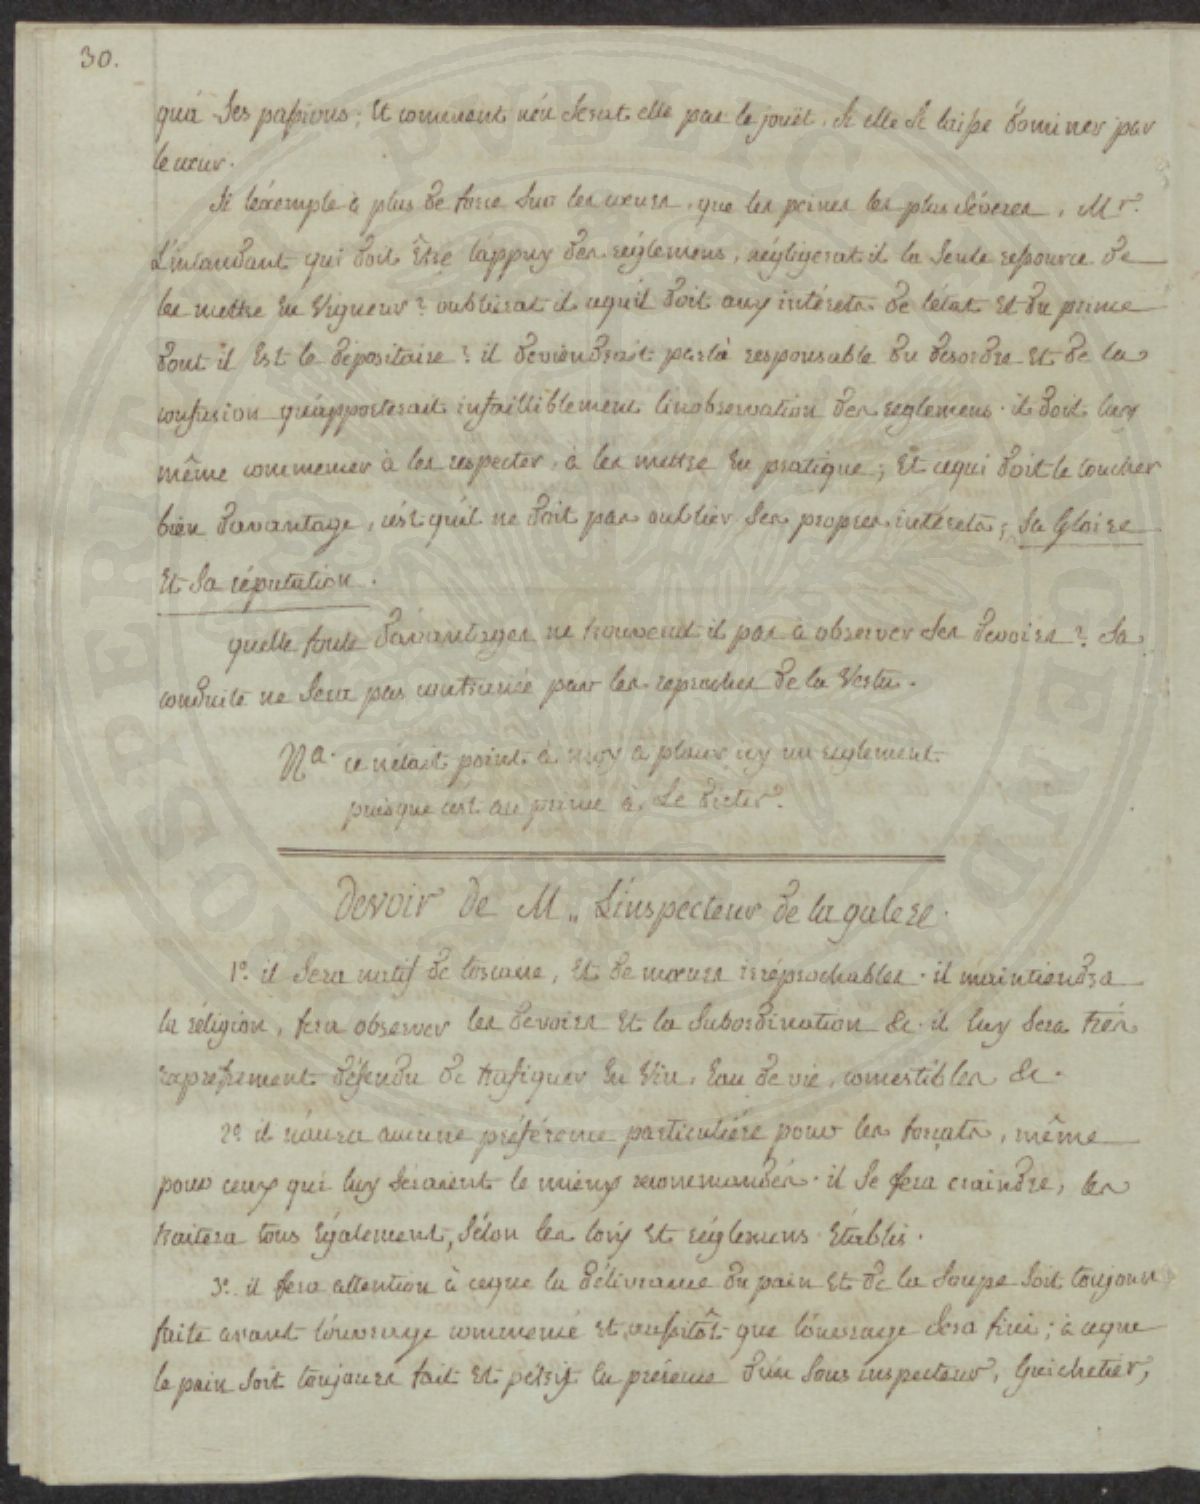 30.
qu'a ses passions; Et comment n'en serat elle pas le jouët, si elle se laisse dominer par
le cœur.
Si léxemple à plus de force sur les cœurs, que les peines les plus sévéres, Mr.
L'intandant qui doit être lappuy des réglemens, négligerat il la seule ressource de
les mettre en vigueur? oublirat il cequ'il doit aux intérets de létat Et du prince
dont il Est le dépositaire? il deviendrait parlà responsable du desordre Et de la
confusion qu'apporterait infailliblement linobservation des reglemens. il doit luy
même commencer à les respecter, à les mettre En pratique; Et cequi doit le toucher
bien davantage, c'est qu'il ne doit pas oublier ses propres intérets, sa Gloire
Et sa réputation.
quelle foule d'avantages ne trouverat il pas à observer ses devoirs? sa
conduite ne sera pas contrariée par les reproches de la Vertu.
Na. ce n'était point à moy à placer icy un reglement
puisque c'est au prince à Le dicter.
Devoir de M,, L'inspécteur de la galere.
1º. il sera natif de toscane, Et de mœurs irréprochables. il maintiendra
la réligion, fera observer les devoirs Et la subordination &c. il luy sera trés
Expressement défendu de trafiquer En Vin, Eau de vie, comestibles &c.
2º il n'aura aucune préférence particuliére pour les forçats, même
pour ceux qui luy séraient le mieux recommandés. il se fera craindre, les
traitera tous Egalement, sélon les loix Et réglemens Etablis.
3º. il fera attention à ceque la délivrance du pain Et de la soupe soit toujours
faite avant l'ouvrage commencé Et aussitôt que l'ouvrage sera fini; à ceque
le pain soit toujours fait Et pétrit En présence d'un sous inspecteur, Guichetier,
PROSPERITE PUBLIC